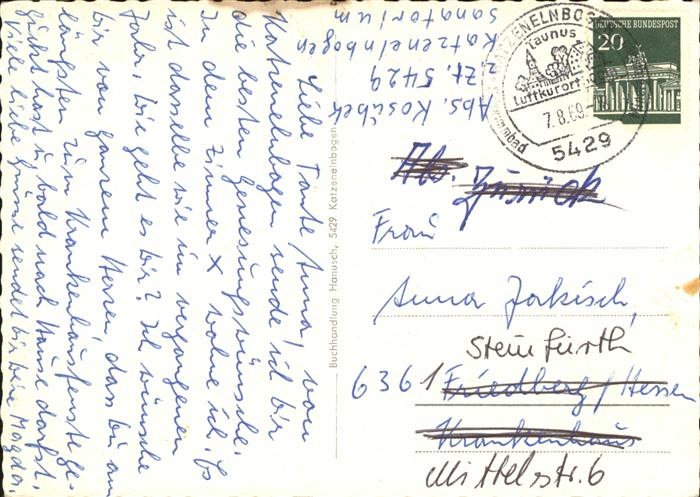 Liebe Tante Anna! Von
Katzenelnbogen sende ich dir
die besten Genesungswünsche.
In dem Zimmer x wohne ich. Es
ist dasselbe wie im vergangenen
Jahr. Wie geht es dir? Ich wünsche
dir von ganzem Herzen, dass du am
längsten zum Krankenhausfenster ge-
guckt hast u. bald nach Hause darfst.
Viele liebe Grüsse sendet dir dein Magda.
Buchhandlung Hanusch, 5429 Katzenelnbogen
Abs. Kosubek
Zt. 5429
Katzenelnbogen
Sanatorium
KATZENELNBOGEN
Taunus
Luftkurort
7.8.69
5429
DEUTSCHE BUNDESPOST
20
Abs. Zurück
Frau
Anna Jakisch,
Steinfurth
6361 Friedberg / Hessen
Krankenhaus
Mittelstr. 6